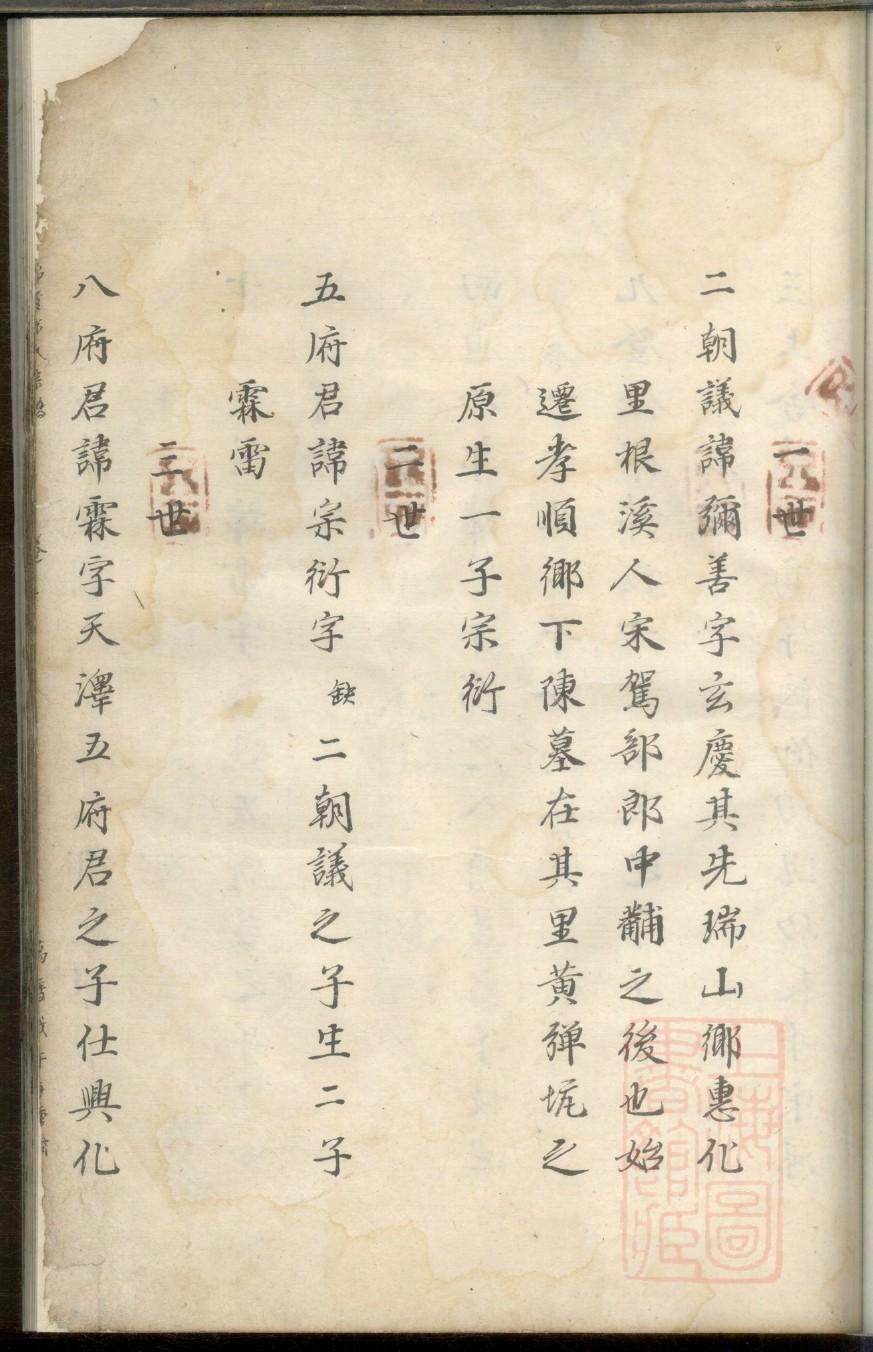 一世
二朝議諱彌善字玄慶其先瑞山鄉惠化
里根溪人宋駕部郎中黼之後也始
遷孝順鄉下陳墓在其里黄彈坑之
原生一子宗衍
二世
五府君諱宗衍字缺二朝議之子生二子
霖雷
三世
八府君諱霖字天澤五府君之子仕興化
上海圖
書館藏